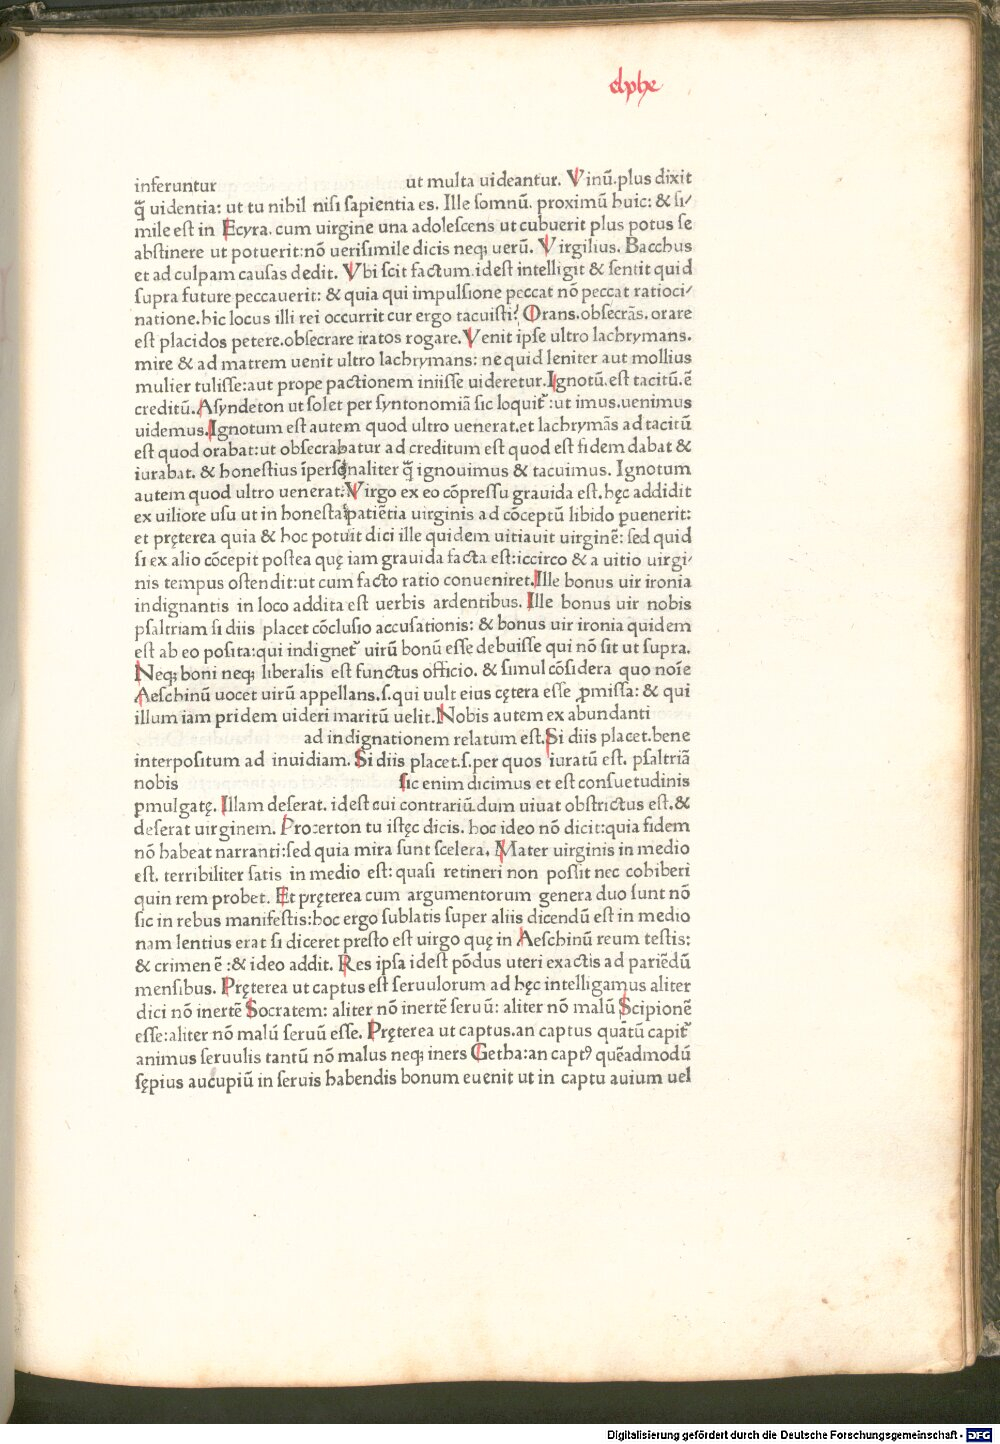 elphe
inferuntur ut multa uideantur. Vinū.plus dixit
q̄ uidentia: ut tu nibil nisi sapientia es. Ille somnū. proximū huic: & si/
mile est in Ecyra. cum uirgine una adolescens ut cubuerit plus potus se
abstinere ut potuerit:nō uerisimile dicis neq; uerū. Virgilius. Bacchus
et ad culpam causas dedit. Vbi scit factum.idest intelligit & sentit quid
supra future peccauerit: & quia qui impulsione peccat nō peccat ratioci/
natione.hic locus illi rei occurrit cur ergo tacuisti? Orans.obsecrās. orare
est placidos petere.obsecrare iratos rogare. Venit ipse ultro lachrymans.
mire & ad matrem uenit ultro lachrymans: ne quid leniter aut mollius
mulier tulisse:aut prope pactionem iniisse uideretur.Ignotū.est tacitū.ē
creditū.Asyndeton ut solet per syntonomiā sic loquit᷑:ut imus.uenimus
uidemus.Ignotum est autem quod ultro uenerat.et lachrymās ad tacitū
est quod orabat:ut obsecrabatur ad creditum est quod est fidem dabat &
iurabat. & honestius īpersonaliter q̄ ignouimus & tacuimus. Ignotum
autem quod ultro uenerat:Virgo ex eo cōpressu grauida est.hęc addidit
ex uiliore usu ut in honesta patiētia uirginis ad cōceptū libido ꝑuenerit:
et pręterea quia & hoc potuit dici ille quidem uitiauit uirginē: sed quid
si ex alio cōcepit postea quę iam grauida facta est:iccirco & a uitio uirgi/
nis tempus ostendit:ut cum facto ratio conueniret.Ille bonus uir ironia
indignantis in loco addita est uerbis ardentibus. Ille bonus uir nobis
psaltriam si diis placet cōclusio accusationis: & bonus uir ironia quidem
est ab eo posita:qui indignet᷑ uirū bonū esse debuisse qui nō sit ut supra.
Neq; boni neq; liberalis est functus officio. & simul cōsidera quo noīe
Aeschinū uocet uirū appellans.s.qui uult eius cętera esse ꝓmissa: & qui
illum iam pridem uideri maritū uelit.Nobis autem ex abundanti
ad indignationem relatum est.Si diis placet.bene
interpositum ad inuidiam. Si diis placet.s.per quos iuratū est. psaltriā
nobis sic enim dicimus et est consuetudinis
pmulgatę. Illam deserat. idest cui contrariū.dum uiuat obstrictus est.&
deserat uirginem. Procerton tu istęc dicis. hoc ideo nō dicit:quia fidem
nō habeat narranti:sed quia mira sunt scelera. Mater uirginis in medio
est. terribiliter satis in medio est: quasi retineri non possit nec cohiberi
quin rem probet. Et pręterea cum argumentorum genera duo sunt nō
sic in rebus manifestis:hoc ergo sublatis super aliis dicendū est in medio
nam lentius erat si diceret presto est uirgo quę in Aeschinū reum testis:
& crimen ē :& ideo addit. Res ipsa idest pōdus uteri exactis ad pariēdū
mensibus. Pręterea ut captus est seruulorum ad hęc intelligamus aliter
dici nō inertē Socratem: aliter nō inertē seruū: aliter nō malū Scipionē
esse:aliter nō malū seruū esse. Pręterea ut captus.an captus quātū capit᷑
animus seruulis tantū nō malus neq; iners Getha:an captꝰ quēadmodū
sępius aucupiū in seruis habendis bonum euenit ut in captu auium uel
Digitalisierung gefördert durch die Deutsche Forschungsgemeinschaft - DFG